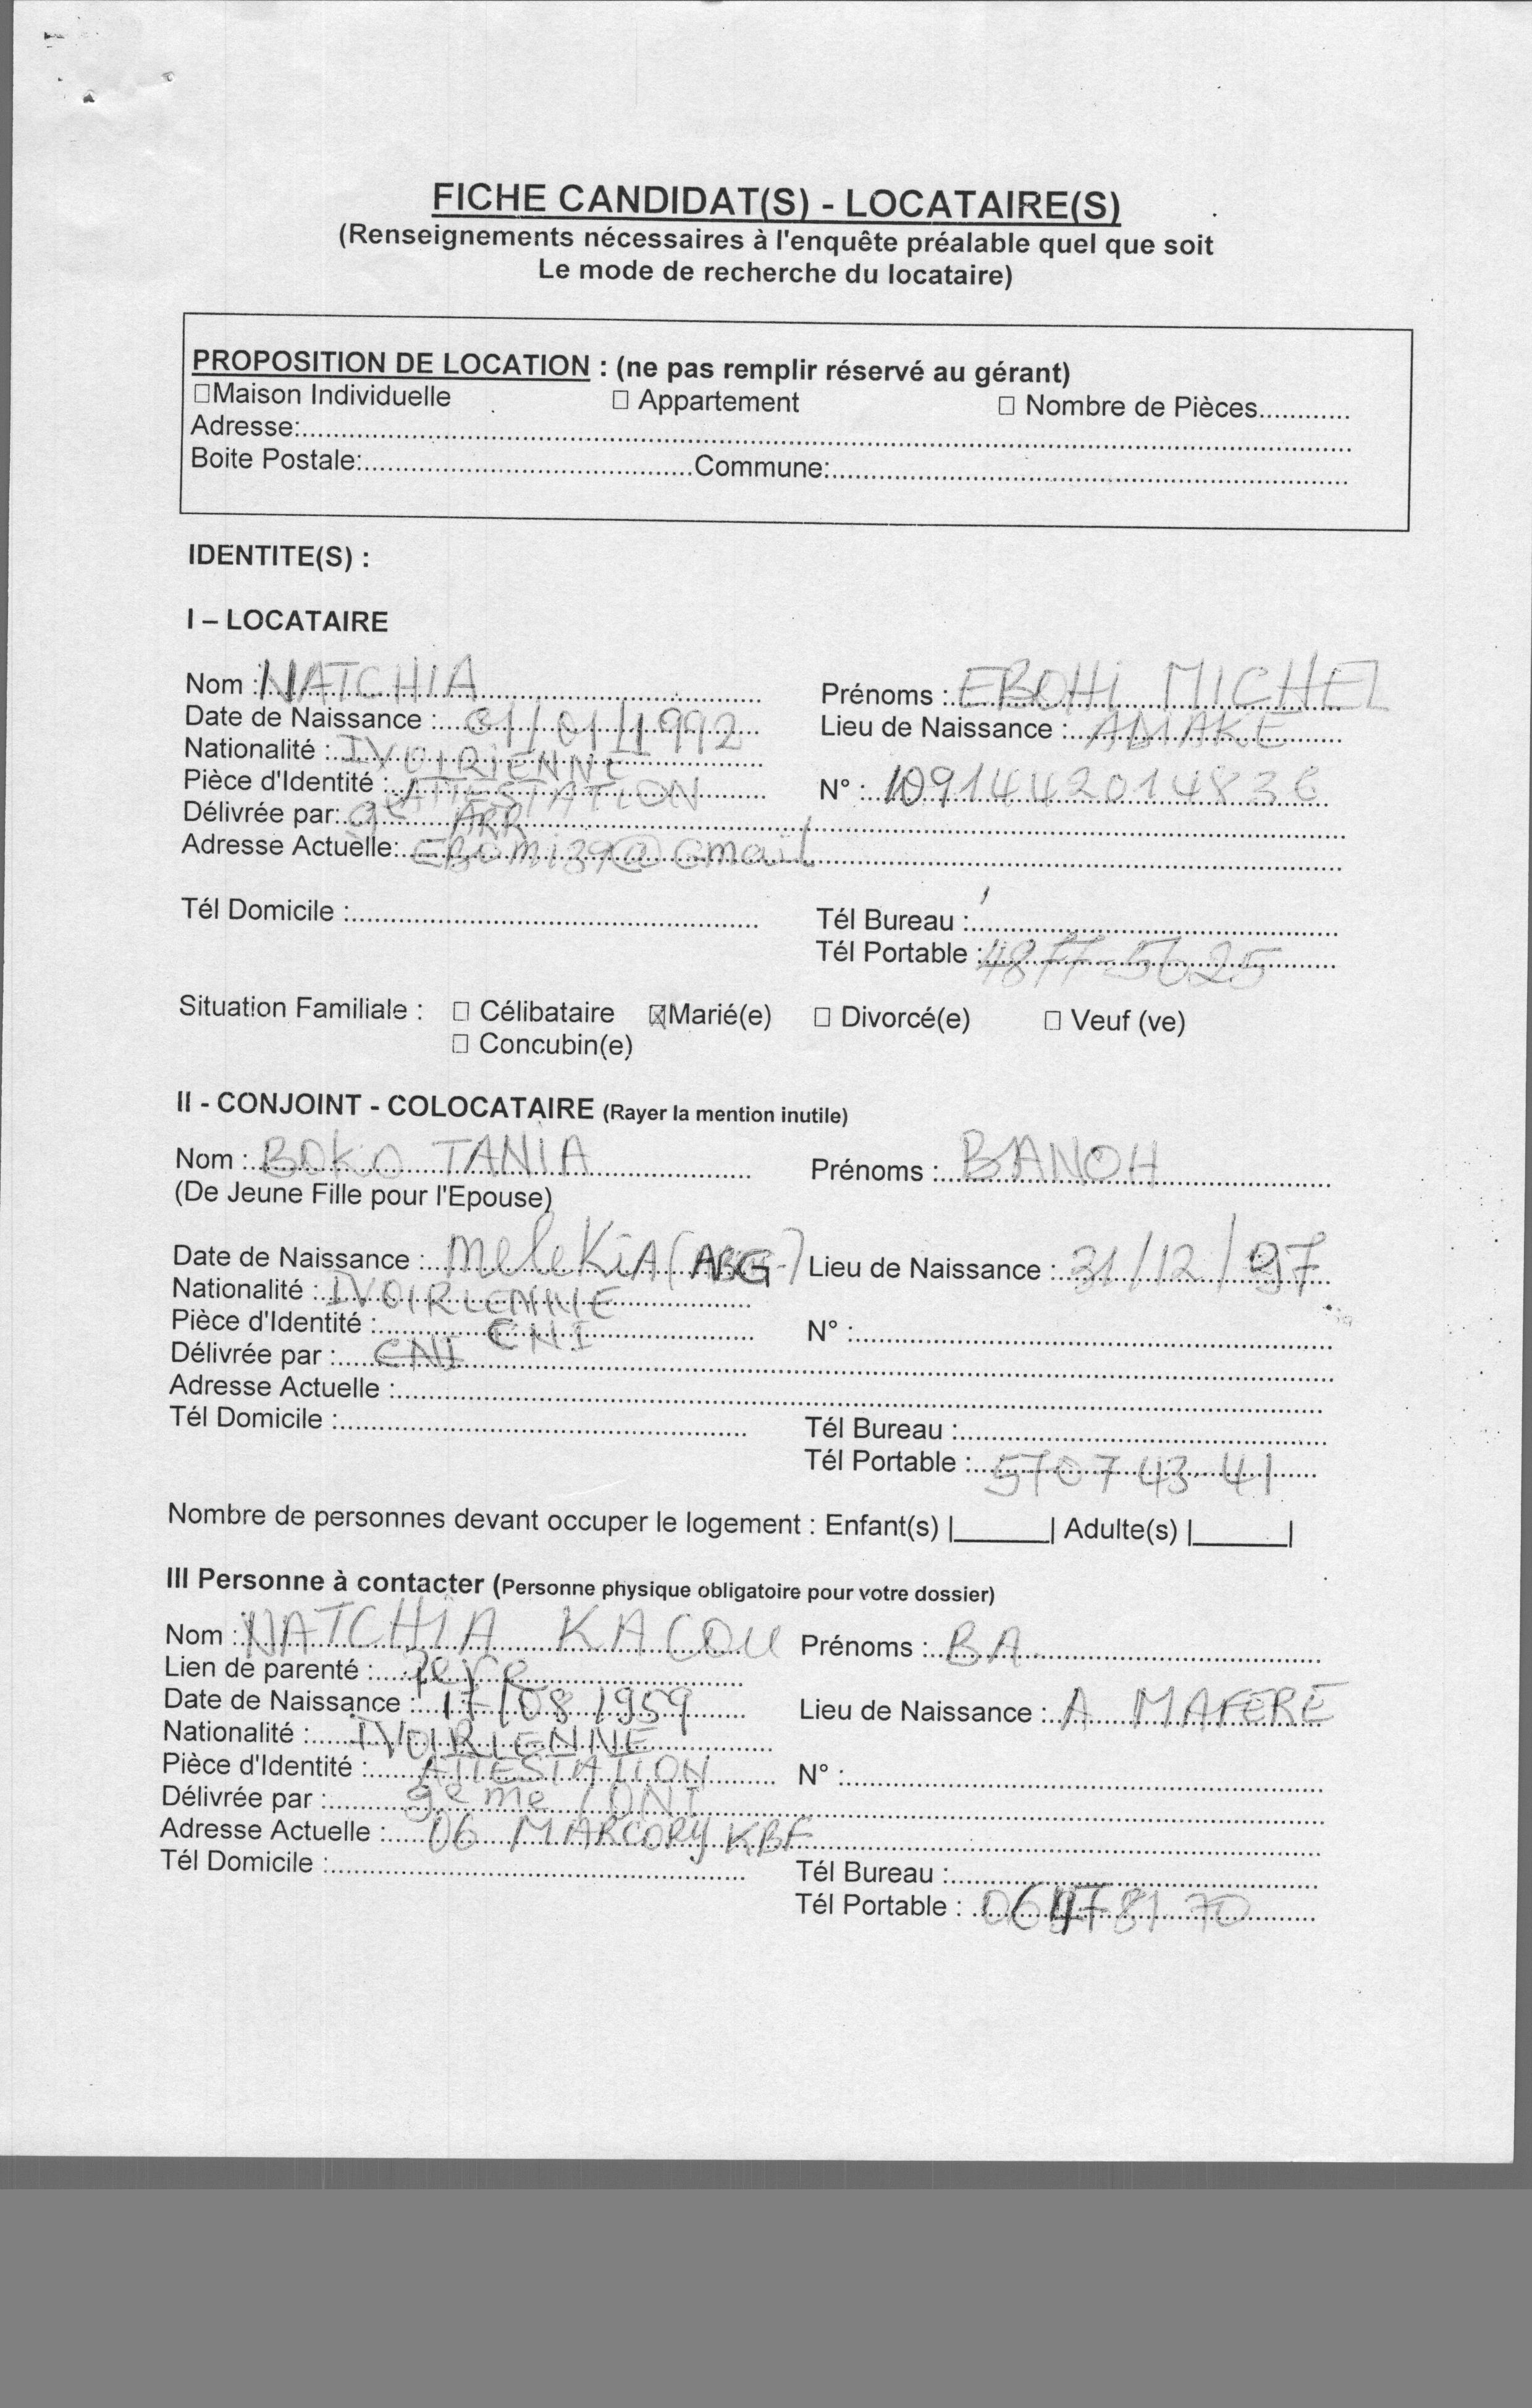 FICHE CANDIDAT(S) - LOCATAIRE(S)
(Renseignements nécessaires à l'enquête préalable quel que soit
Le mode de recherche du locataire)
PROPOSITION DE LOCATION : (ne pas remplir réservé au gérant)
□Maison Individuelle □ Appartement □ Nombre de Pièces............
Adresse:..............................
Boite Postale:....................Commune:..............................
IDENTITE(S) :
I – LOCATAIRE
Nom : NATCHIA Prénoms : EBOHI MICHEL
Date de Naissance : 01/01/1992 Lieu de Naissance : AMAKE
Nationalité : IVOIRIENNE
Pièce d'Identité : ATTESTATION N° : 10914442014836
Délivrée par: 9e ARR
Adresse Actuelle: EBOMI39@Gmail
Tél Domicile : Tél Bureau :
Tél Portable : 4877-5625
Situation Familiale : □ Célibataire ☒Marié(e) □ Divorcé(e) □ Veuf (ve)
□ Concubin(e)
II - CONJOINT - COLOCATAIRE (Rayer la mention inutile)
Nom : BOKO TANIA Prénoms : BANOH
(De Jeune Fille pour l'Epouse)
Date de Naissance : MeleKiA Lieu de Naissance : 31/12/97
Nationalité : IVOIRIENNE
Pièce d'Identité : CNI N° :
Délivrée par : CNI
Adresse Actuelle :
Tél Domicile : Tél Bureau :
Tél Portable : 570743-41
Nombre de personnes devant occuper le logement : Enfant(s) |______| Adulte(s) |______|
III Personne à contacter (Personne physique obligatoire pour votre dossier)
Nom : NATCHIA KACOU Prénoms : BA
Lien de parenté : Père
Date de Naissance : 17/08/1959 Lieu de Naissance : A MAFERE
Nationalité : IVOIRIENNE
Pièce d'Identité : ATTESTATION N° :
Délivrée par : 9eme / ONI
Adresse Actuelle : 06 MARCORY KBF
Tél Domicile : Tél Bureau :
Tél Portable : 06478170